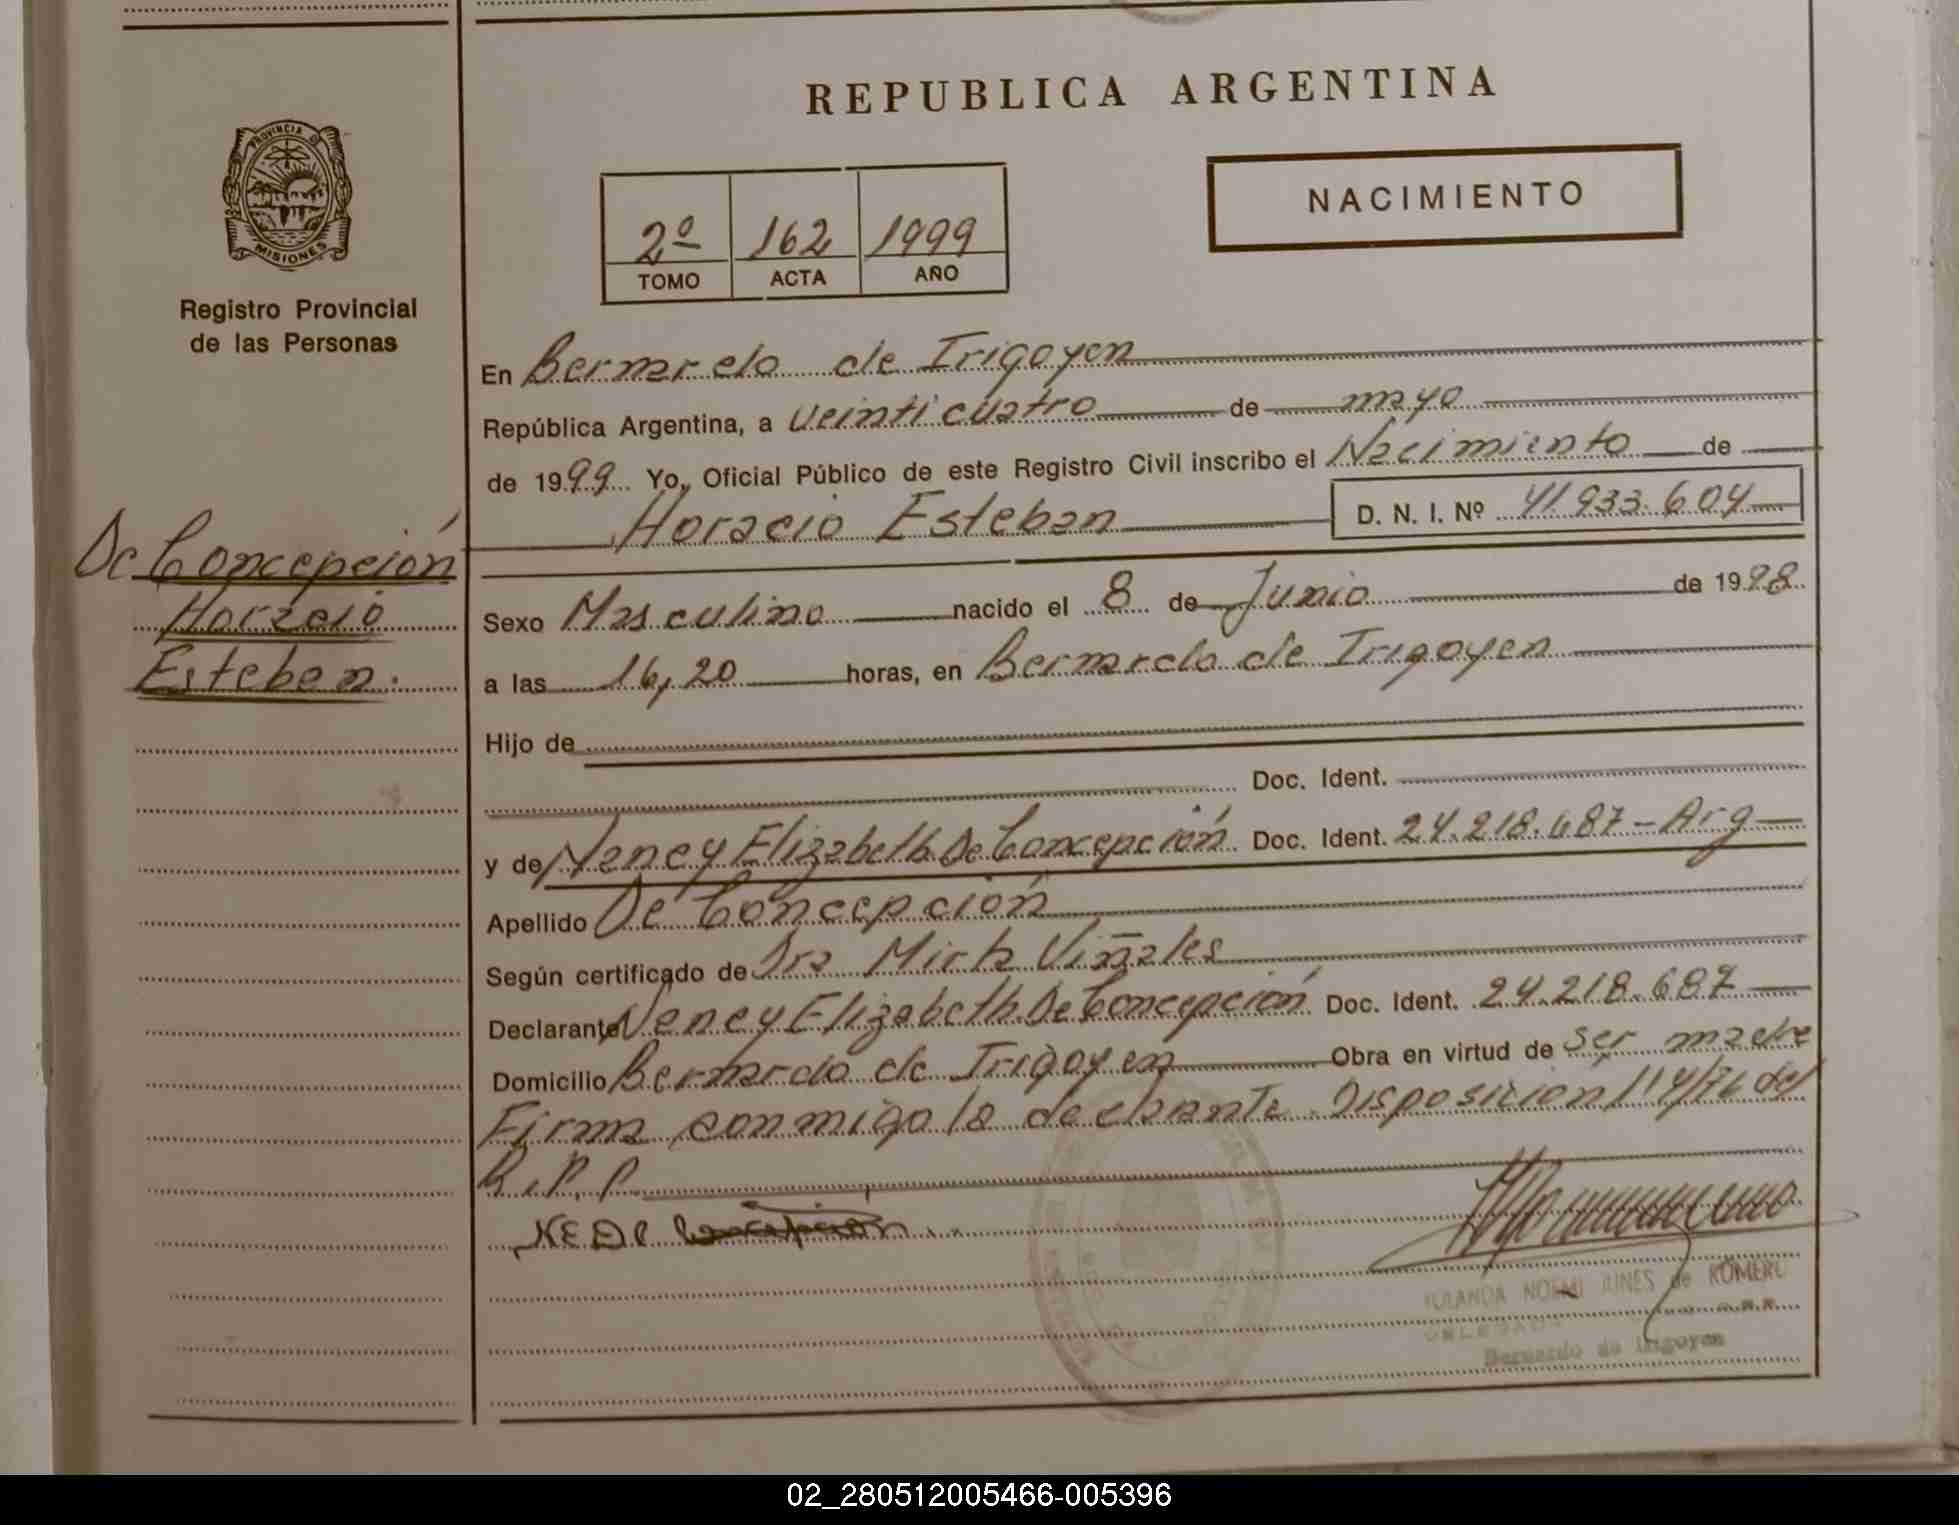 REPUBLICA ARGENTINA
PROVINCIA D
MISIONES
Registro Provincial
de las Personas
2º 162 1999
TOMO ACTA AÑO
NACIMIENTO
En Bernardo de Irigoyen
República Argentina, a veinticuatro de mayo
de 1999 Yo, Oficial Público de este Registro Civil inscribo el Nacimiento de
Horacio Esteban D. N. I. Nº 41.933.604
De Concepción
Horacio
Esteban.
Sexo Masculino nacido el 8 de Junio de 1998
a las 16,20 horas, en Bernardo de Irigoyen
Hijo de
Doc. Ident.
y de Nancy Elizabeth De Concepción Doc. Ident. 24.218.687 - Arg
Apellido De Concepción
Según certificado de Dra Mirta Viñales
Declarante Nancy Elizabeth De Concepción Doc. Ident. 24.218.687
Domicilio Bernardo de Irigoyen Obra en virtud de ser madre
Firma conmigo la declarante. Disposición 114/76 del
R.P.P.
NE De Concepción
NOEMI de ROMERO
Bernardo de Irigoyen
02_280512005466-005396